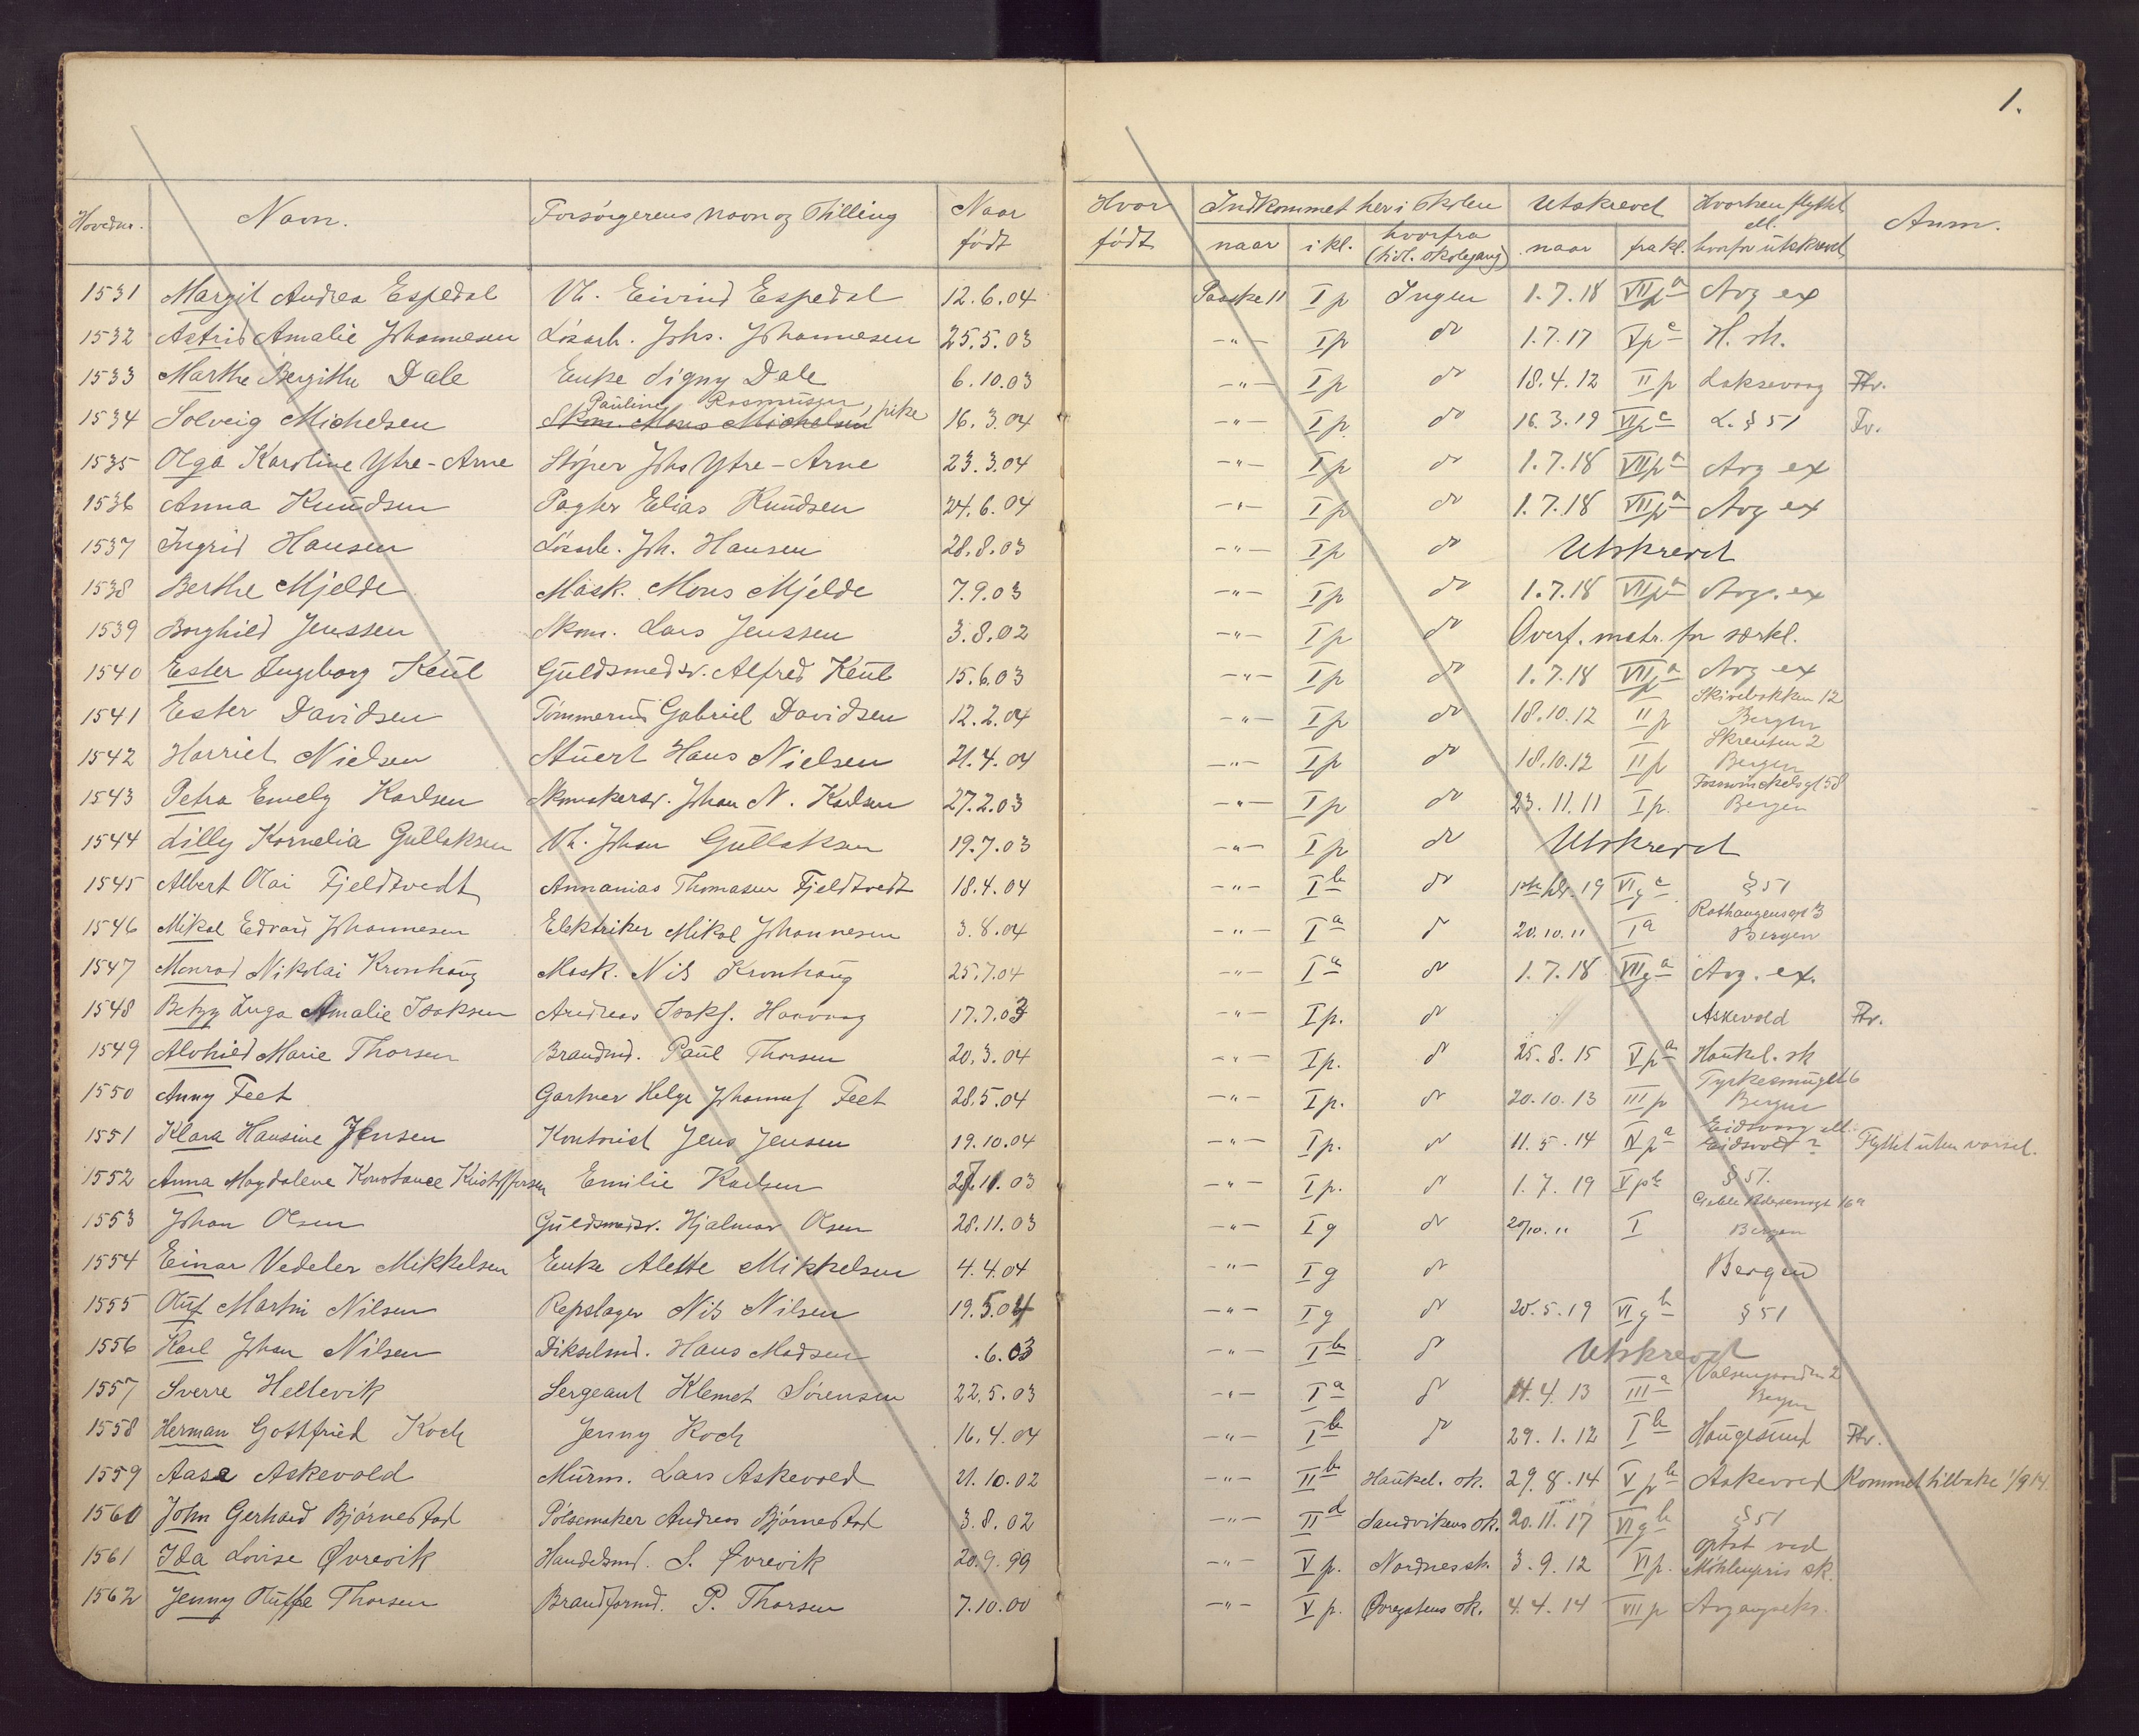 1.
Hovednr. Navn. Forsörgerens navn og Stilling Naar födt Hvor födt Indkommet her i Skolen Utskrevet Hvorhen flyttet ell. hvorfor utskrevet Anm.
naar i kl. hvorfra (tidl. skolegang) naar fra kl.
1531 Margit Andrea Espedal Vh. Eivind Espedal 12.6.04 Paaske 11 I p Ingen 1.7.18 VII p a Avg ex
1532 Astrid Amalie Johannesen Lösarb. Johs. Johannesen 25.5.03 -"- I p do 1.7.17 V p c H. sk.
1533 Marthe Bergithe Dale Enke Signy Dale 6.10.03 -"- I p do 18.4.12 II p Laksevaag Fv.
Pauline Rasmussen, pike
1534 Solveig Michelsen Skom. Mons Michelsen 16.3.04 -"- I p do 16.3.19 VI p c L. § 51 Fv.
1535 Olga Karoline Ytre-Arne Stöper Johs Ytre-Arne 23.3.04 -"- I p do 1.7.18 VII p a Avg ex
1536 Anna Knudsen Pagter Elias Knudsen 24.6.04 -"- I p do 1.7.18 VII p a Avg ex
1537 Ingrid Hansen Lösarb. Joh. Hansen 28.8.03 -"- I p do Utskrevet
1538 Berthe Mjelde Mask. Mons Mjelde 7.9.03 -"- I p do 1.7.18 VII p a Avg. ex
1539 Borghild Jenssen Skom. Lars Jenssen 3.8.02 -"- I p do Overf. matr. for særkl.
1540 Ester Ingeborg Keul Guldsmedsv. Alfred Keul 15.6.03 -"- I p do 1.7.18 VII p a Avg ex
Skivebakken 12
1541 Ester Davidsen Tömmermd Gabriel Davidsen 12.2.04 -"- I p do 18.10.12 II p Bergen
Skreuten 2
1542 Harriet Nielsen Stuert Hans Nielsen 21.4.04 -"- I p do 18.10.12 II p Bergen
Fosswinckelsgt 58
1543 Petra Emely Karlsen Skomakersv. Johan N. Karlsen 27.2.03 -"- I p do 23.11.11 I p. Bergen
1544 Lilly Kornelia Gullaksen Vh. Johan Gullaksen 19.7.03 -"- I p do Utskrevet
1545 Albert Olai Fjeldtvedt Annanias Thomassen Fjeldtvedt 18.4.04 -"- I b do 19 VI g c § 51
3
1546 Mikal Edvard Johannesen Elektriker Mikal Johannesen 3.8.04 -"- I a do 20.10.11 I a Bergen
1547 Monrad Nikolai Kronhaug Mask. Nils Kronhaug 25.7.04 -"- I a do 1.7.18 VII g a Avg. ex.
1548 Betzy Inga Amalie Isaksen Andreas Isaks. Haavaag 17.7.03 -"- I p. do Askevold Fv.
1549 Alvhild Marie Thorsen Brandmd. Paul Thorsen 20.3.04 -"- I p. do 25.8.15 V p a Haukel. sk
6
1550 Anny Feet Gartner Helge Johannes Feet 28.5.04 -"- I p. do 20.10.13 III p Bergen
Eidsvaag ell.
1551 Klara Hansine Jensen Kontorist Jens Jensen 19.10.04 -"- I p. do 11.5.14 IV p a Eidsvold? Flyttet uten varsel.
1552 Anna Magdalene Konstance Kristoffersen Emilie Karlsen 27.11.03 -"- I p. do 1.7.19 V p b § 51.
16 a
1553 Johan Olsen Guldsmedsv. Hjalmar Olsen 28.11.03 -"- I g do 20/10.11 I Bergen
1554 Einar Vedeler Mikkelsen Enke Alette Mikkelsen 4.4.04 -"- I g do Bergen
1555 Oluf Martin Nilsen Repslager Nils Nilsen 19.5.04 -"- I g do 20.5.19 VI g b § 51
1556 Karl Johan Nilsen Dikselmd. Hans Madsen .6.03 -"- I b do Utskrevet
2
1557 Sverre Hellevik Sergeant Klemet Sörensen 22.5.03 -"- I a do 11.4.13 III a Bergen
1558 Herman Gottfried Koch Jenny Koch 16.4.04 -"- I b do 29.1.12 I b Haugesund Fv.
1559 Aase Askevold Murm. Lars Askevold 21.10.02 -"- II b Haukel. sk. 29.8.14 V p b Askevold Kommet tilbake 1/9 14.
1560 John Gerhard Björnestad Pölsemaker Andreas Björnestad 3.8.02 -"- II d Sandvikens sk. 20.11.17 VI g b § 51
1561 Ida Lovise Øvrevik Handelsmd. S. Øvrevik 20.9.99 -"- V p. Nordnes sk. 3.9.12 VI p. optat ved Möhlenpris sk.
1562 Jenny Oluffe Thorsen Brandformd. P. Thorsen 7.10.00 -"- V p. Øvregatens sk. 4.4.14 VII p Avgangseks.